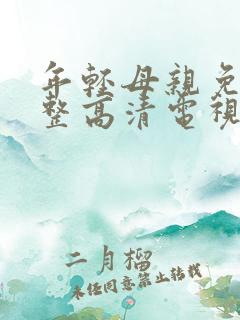 年轻母親免
整高清電視
二月榴
未经同意禁止转载